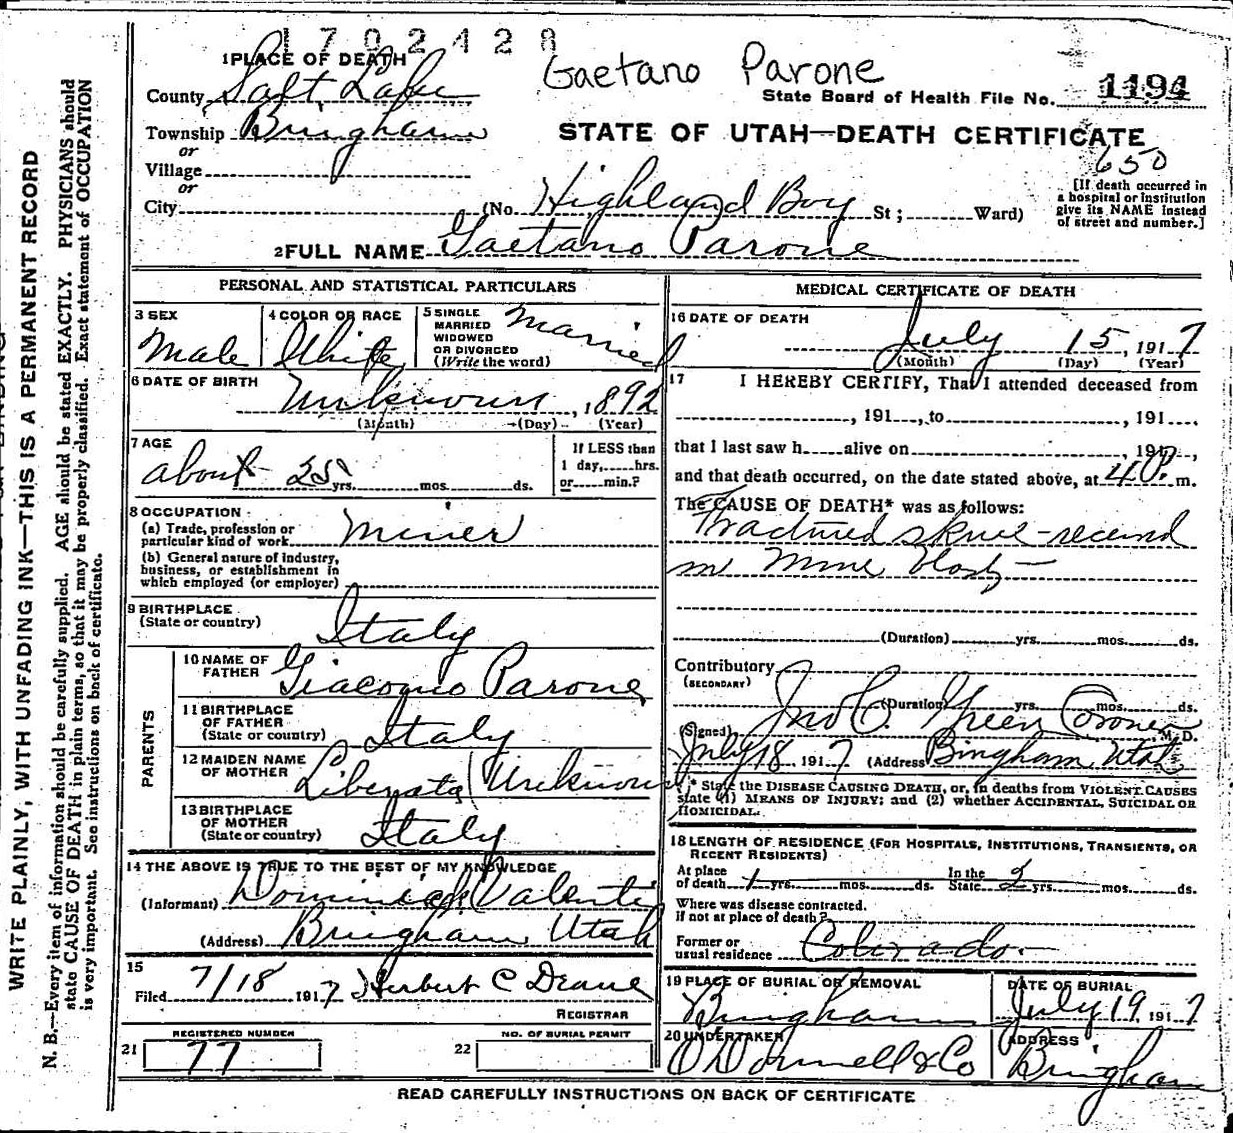 1702428
Gaetano Parone
1 PLACE OF DEATH
County Salt Lake
State Board of Health File No. 1194
Township Bingham
STATE OF UTAH—DEATH CERTIFICATE
or
650
Village
or
[If death occurred in
a hospital or institution
give its NAME instead
of street and number.]
City (No. Highland Boy St; Ward)
2 FULL NAME Gaetano Parone
PERSONAL AND STATISTICAL PARTICULARS
3 SEX
Male
4 COLOR OR RACE
White
5 SINGLE
MARRIED
WIDOWED
OR DIVORCED
(Write the word)
Married
6 DATE OF BIRTH
Unknown, 1892
(Month) (Day) (Year)
7 AGE
about 25 yrs. mos. ds.
If LESS than
1 day, hrs.
or min.?
8 OCCUPATION
(a) Trade, profession or
particular kind of work Miner
(b) General nature of industry,
business, or establishment in
which employed (or employer)
9 BIRTHPLACE
(State or country) Italy
PARENTS
10 NAME OF
FATHER Giacomo Parone
11 BIRTHPLACE
OF FATHER
(State or country) Italy
12 MAIDEN NAME
OF MOTHER Liberata (Unknown)
13 BIRTHPLACE
OF MOTHER
(State or country) Italy
14 THE ABOVE IS TRUE TO THE BEST OF MY KNOWLEDGE
(Informant) Dominick Valenti
(Address) Bingham, Utah
15
Filed 7/18 1917 Herbert C Deane
REGISTRAR
REGISTERED NUMBER
21 77
NO. OF BURIAL PERMIT
22
MEDICAL CERTIFICATE OF DEATH
16 DATE OF DEATH
July 15, 1917
(Month) (Day) (Year)
17 I HEREBY CERTIFY, That I attended deceased from
, 191 , to , 191
that I last saw h alive on , 191 ,
and that death occurred, on the date stated above, at 4 P. m.
The CAUSE OF DEATH* was as follows:
Fractured skull - received
in Mine blast -
(Duration) yrs. mos. ds.
Contributory
(SECONDARY)
(Duration) yrs. mos. ds.
(Signed) Jno C. Green Coroner M. D.
July 18 1917 (Address) Bingham Utah
* State the DISEASE CAUSING DEATH, or, in deaths from VIOLENT CAUSES
state (1) MEANS OF INJURY; and (2) whether ACCIDENTAL, SUICIDAL OR
HOMICIDAL.
18 LENGTH OF RESIDENCE (FOR HOSPITALS, INSTITUTIONS, TRANSIENTS, OR
RECENT RESIDENTS)
At place
of death 1 yrs. mos. ds.
In the
State 2 yrs. mos. ds.
Where was disease contracted.
if not at place of death?
Former or
usual residence Colorado.
19 PLACE OF BURIAL OR REMOVAL
Bingham
DATE OF BURIAL
July 19, 1917
20 UNDERTAKER
O'Donnell & Co
ADDRESS
Bingham
READ CAREFULLY INSTRUCTIONS ON BACK OF CERTIFICATE
WRITE PLAINLY, WITH UNFADING INK—THIS IS A PERMANENT RECORD
N. B.—Every item of information should be carefully supplied. AGE should be stated EXACTLY. PHYSICIANS should
state CAUSE OF DEATH in plain terms, so that it may be properly classified. Exact statement of OCCUPATION
is very important. See instructions on back of certificate.